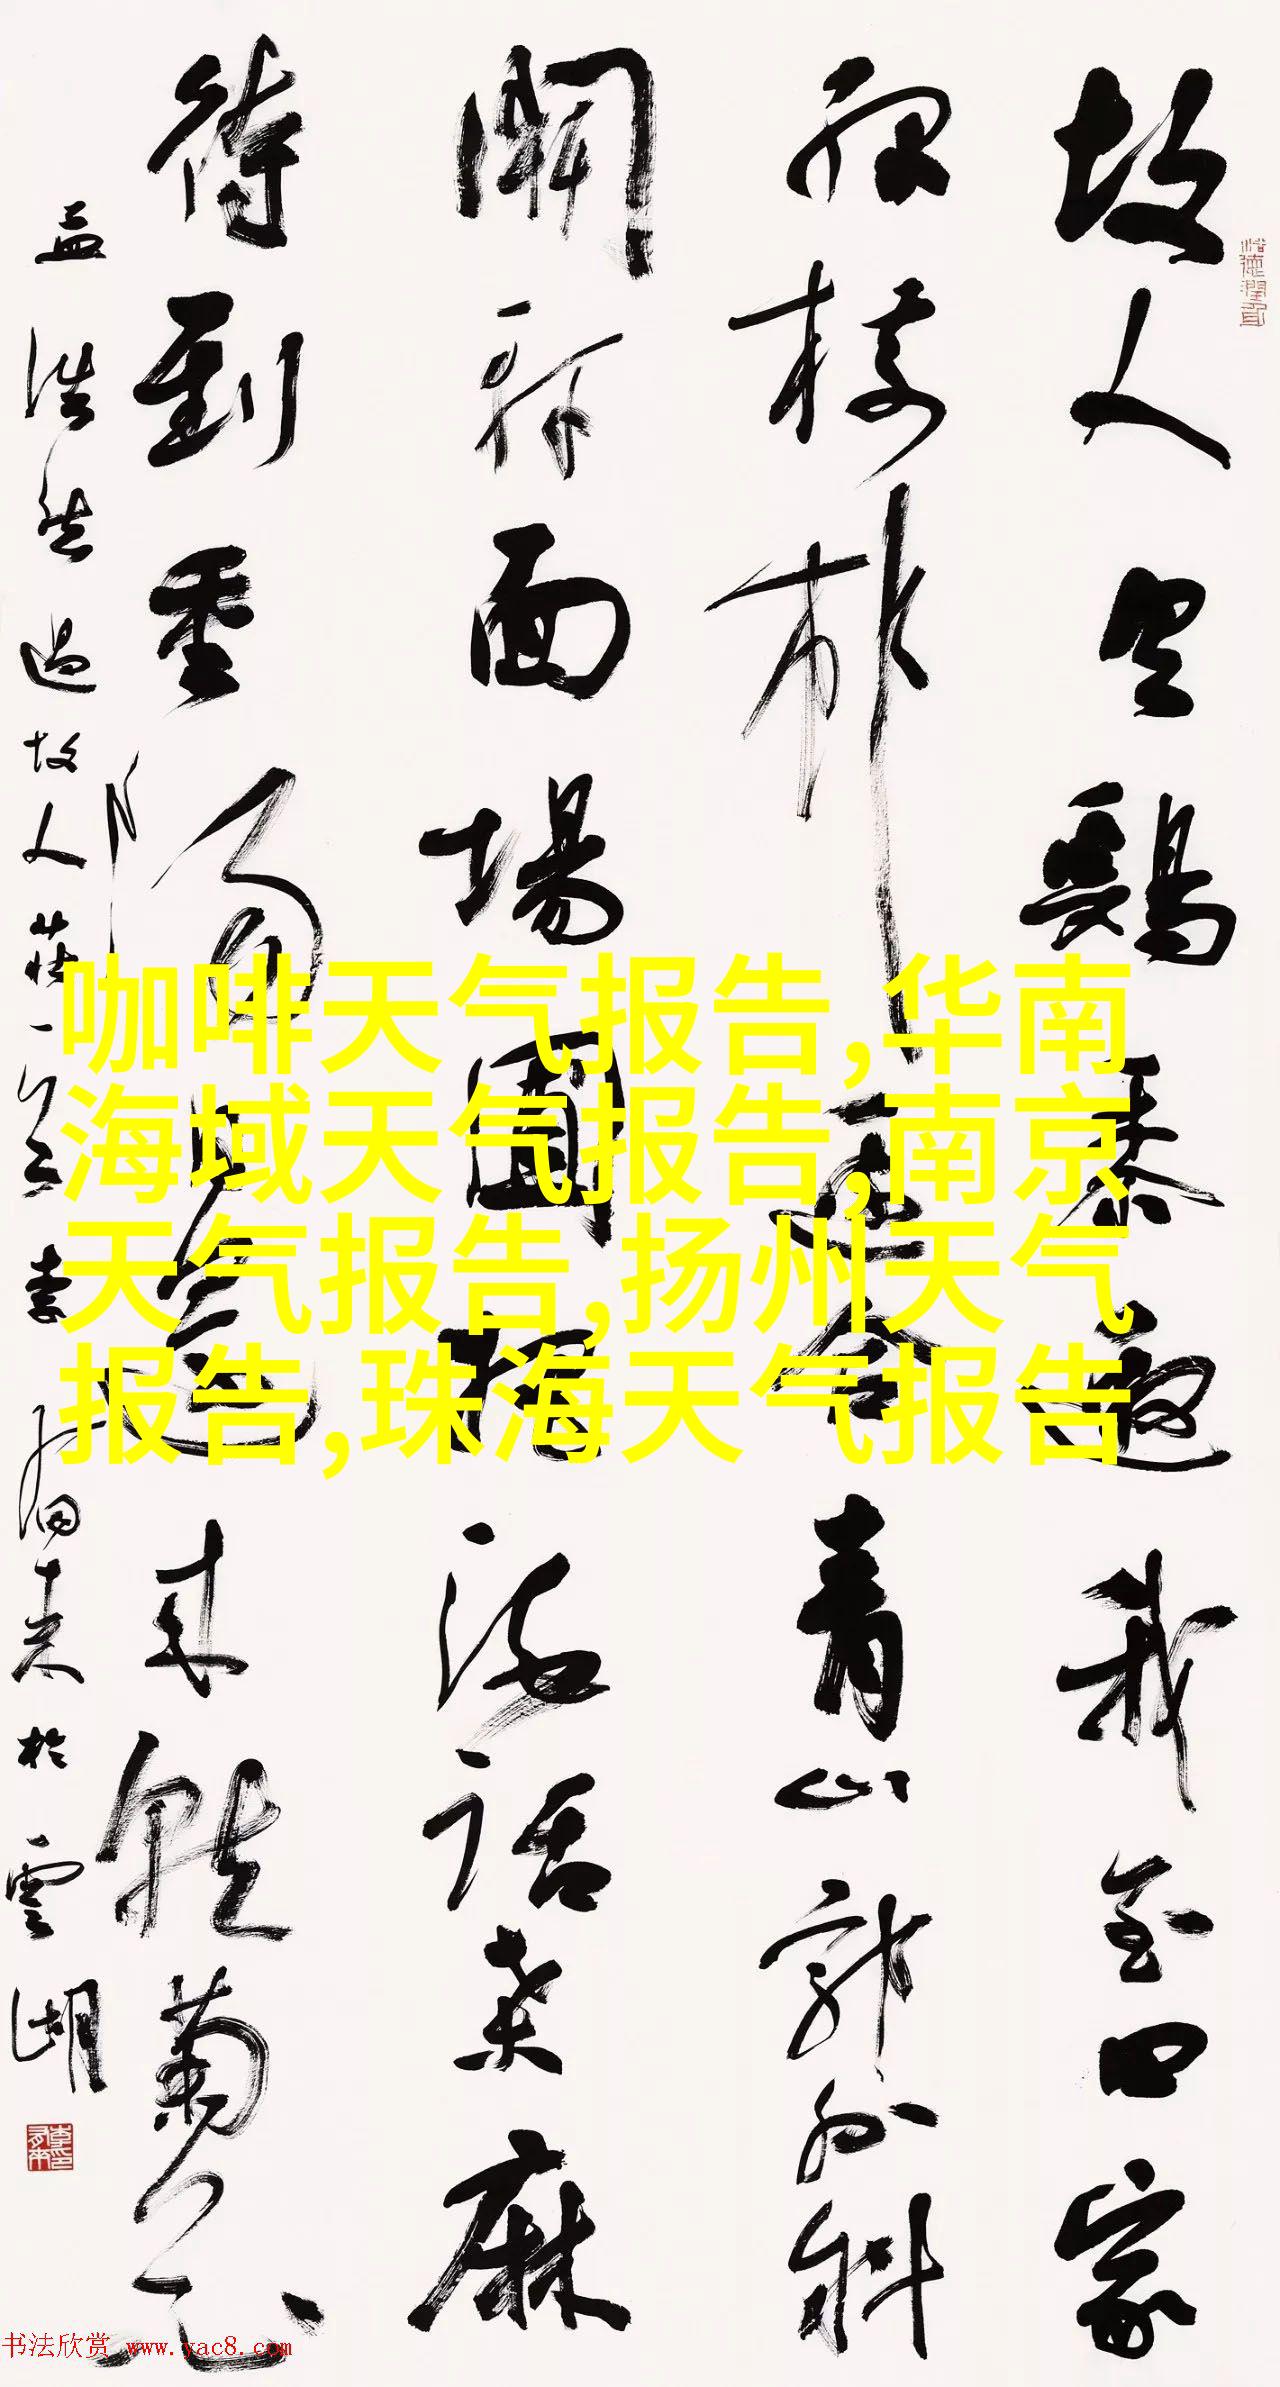 故人具鷄黍邀我至田家
緑樹村邊合青山郭外斜
開軒面場圃把酒話桑麻
待到重陽日還来就菊花
孟浩然過故人莊一首李有来於雲湖
咖啡天气报告,华南
海域天气报告,南京
天气报告,扬州天气
报告,珠海天气报告
书法欣赏 www.yac8.com